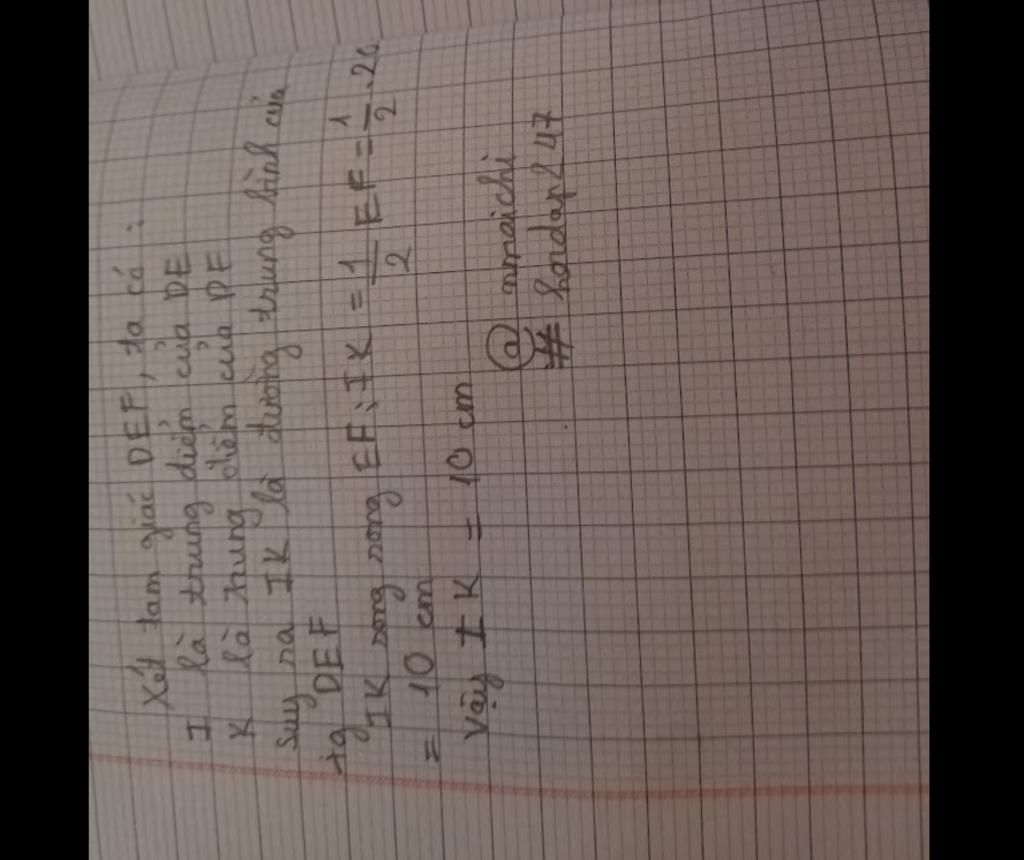 Xét tam giác DEF, ta có:
I là trung điểm của DE
K là trung điểm của DF
Suy ra IK là đường trung bình của
tg DEF
IK song song EF; IK = 1/2 EF = 1/2 . 20
= 10 cm
Vậy IK = 10 cm
@ nmaichi
# hoidap247